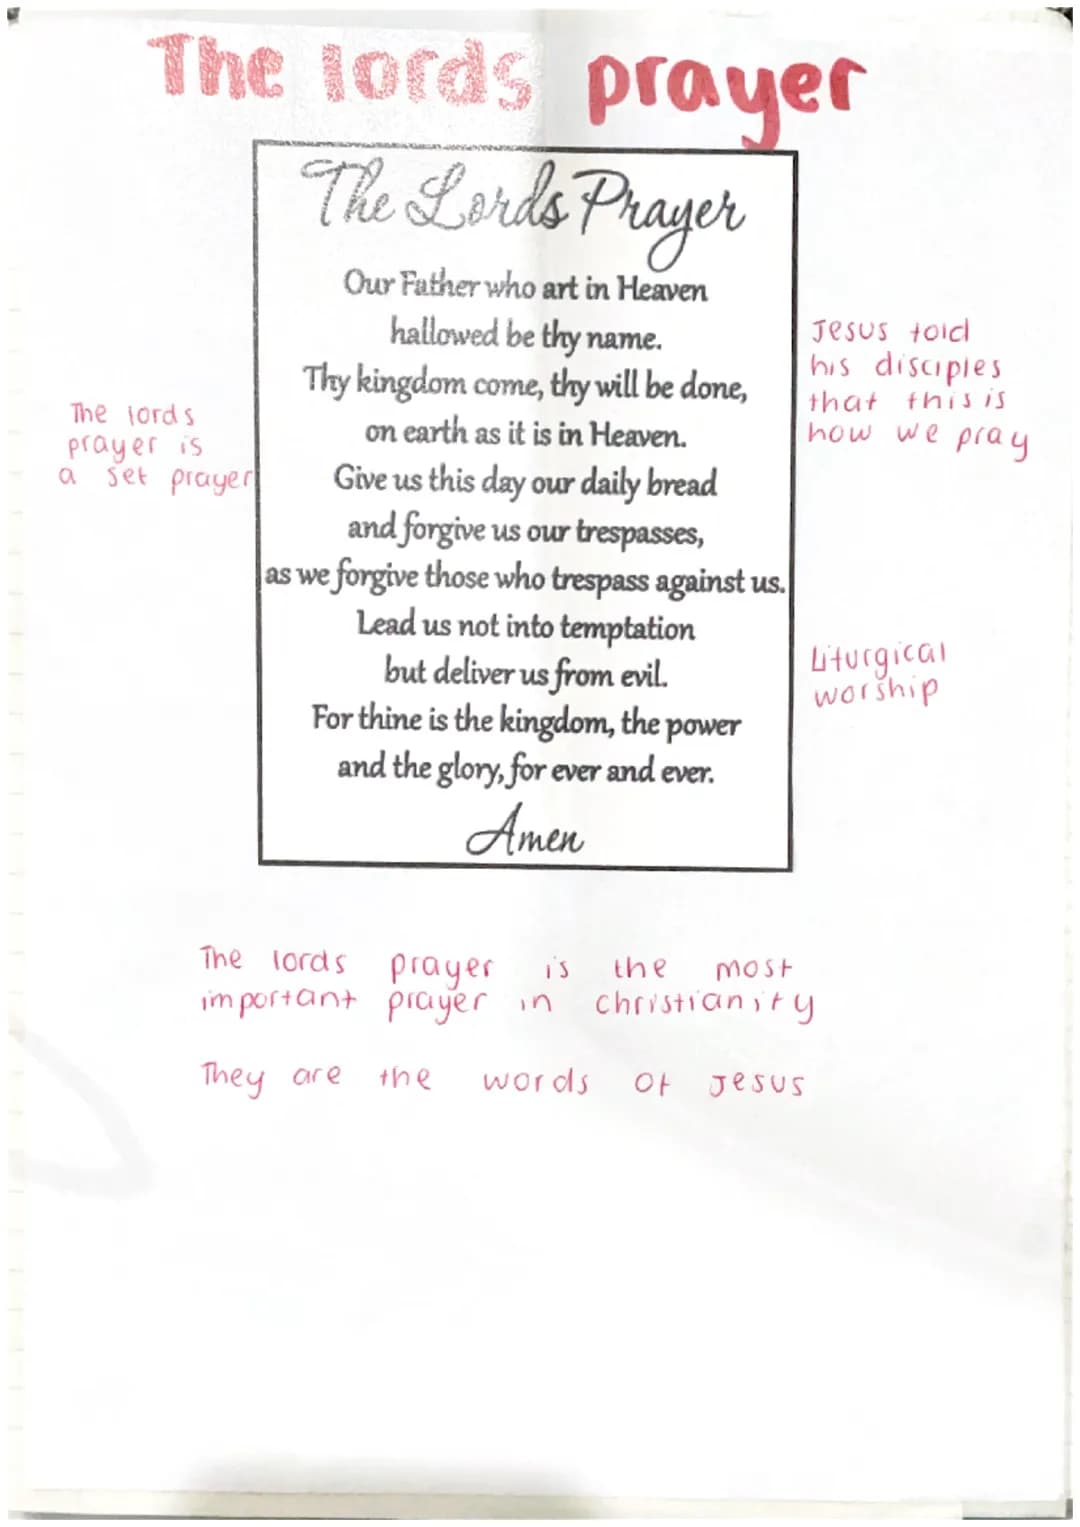 The lords prayer
The Lords Prayer
Our Father who art in Heaven
hallowed be thy name.
Thy kingdom come, thy will be done,
on earth as it is in Heaven.
Give us this day our daily bread
and forgive us our trespasses,
as we forgive those who trespass against us.
Lead us not into temptation
but deliver us from evil.
For thine is the kingdom, the power
and the glory, for ever and ever.
Amen
The lords
prayer is
a set prayer
Jesus told
his disciples
that this is
how we pray
Liturgical
worship
The lords prayer is the most
important prayer in christianity
They are the words of Jesus